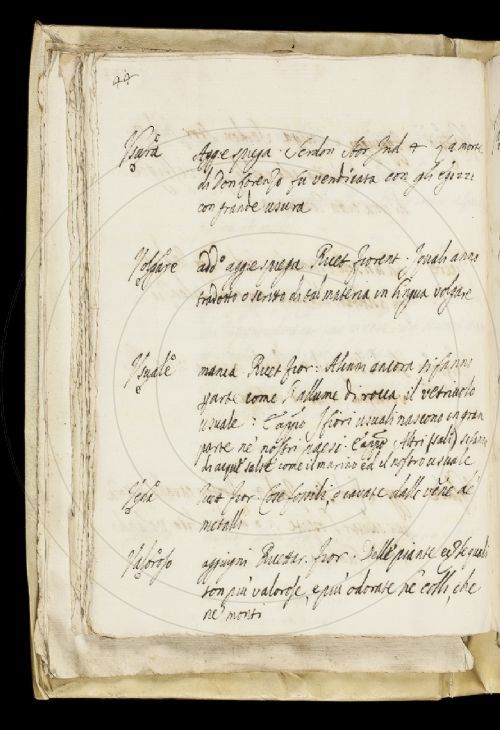 44
Usura Agg. e spiega. Serdon. Stor. Ind. 4. La morte
di Don Lorenzo fu vendicata con gli Egizzi
con grande usura
Volgare add.º agg. e spiega Ricet. Fiorent. I quali anno
tradotto o scritto di tal materia in lingua volgare
Usuale manca Ricet. Fior: Alcuni ancora si fanno
parte come l'allume di rocca, il vetriuolo
usuale: I fiori usuali nascono in gran
parte ne' nostri paesi. Altri (sali)
di acque salse come il marino ed il nostro usuale
Vena Ricet. Fior. Cose fossili, o cavate dalle vene de'
metalli
Valoroso aggiugni Ricettar. Fior. Delle piante
son più valorose, e più odorate ne' colli, che
ne' monti